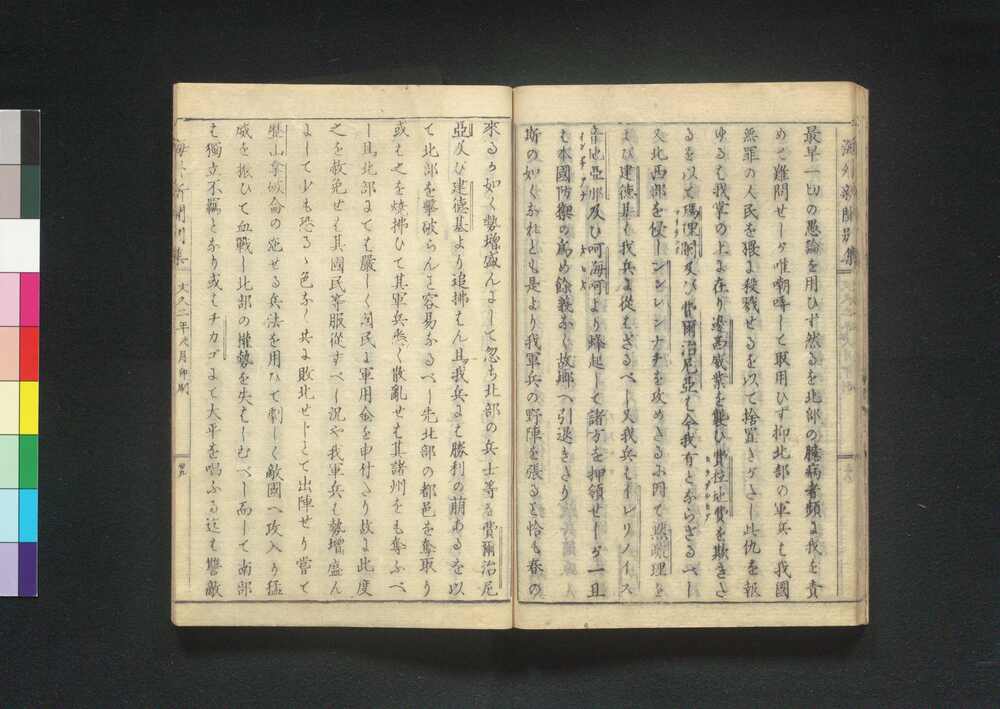 海外新聞別集
最早一切の愚論を用ひず然るを北部の臆病者頻は我を責
めて難問せしが唯嘲哢して取用ひず抑北部の軍兵も我國
無罪の人民を猥は殺戮せるを以て捨置きがたし此仇を報
ゆるも我掌の上ま在り 威業を 費拉地費を欺きた
るを以て瑪理蘭及び費爾治尼亞も今我有とならざるべし
又北西部を侵しシンシンナチを攻めざるに因て 理を
よび建德基も我兵は從はざるべし又我兵もイレリノイス
音地亞那及ひ呵海呵より蜂起して諸方を押領せしが一旦
も本國防禦の爲め餘義なく故鄉へ引退きたり
斯の如くなれとも是より我軍兵の野陣を張ると恰も春の
來るが如く勢增盛んまして忽ち北部の兵士等を費爾治尼
亞及び建德基より追拂はん且我兵まも勝利の萠あるを以
て北部を擊破らんと容易なるべし先北部の都邑を奪取り
或も之を燒拂ひて其軍兵悉く散亂せば其諸州をも奪ふべ
し且北部まても嚴しく闔民ま軍用金を申付たり故ま此度
之を赦免せば其國民等服從すべし況や我軍兵も勢增盛ん
まして少も恐るゝ色なく其ま敗北せじとて出陣せり嘗て
歷山拿破侖の 兵法を用ひて劇しく敵國へ攻入り猛
威を振ひて血戰し北部の權勢を失はしむべし而して南部
も獨立不羈となり或もチカゴまて大平を唱ふる迄も讐敵
海外新聞別集
文久二年 月印刷